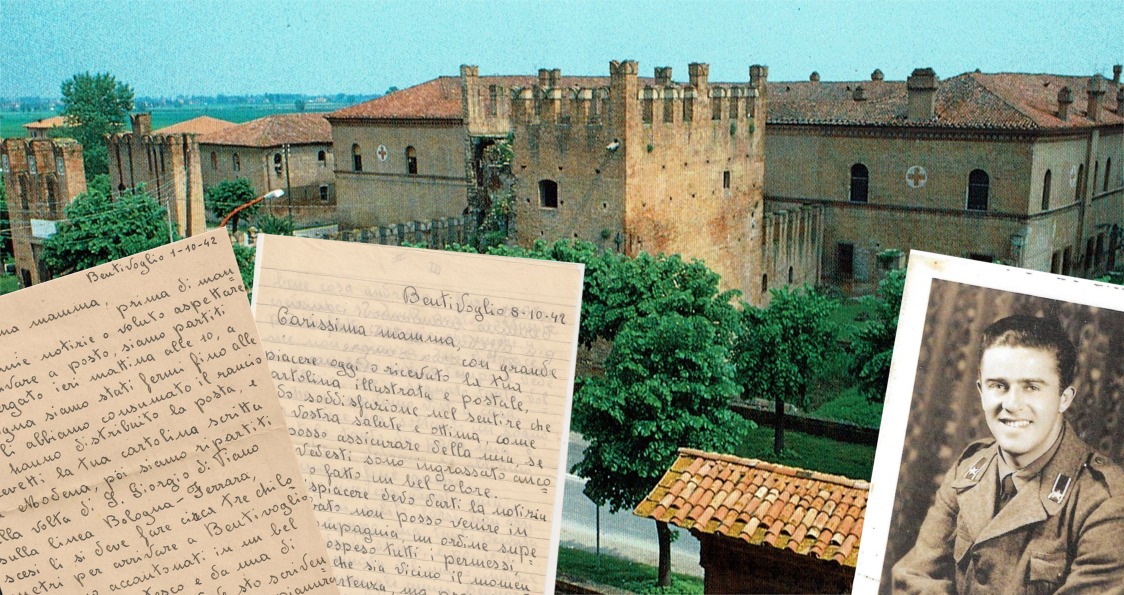 Bentivoglio 1-10-42
mamma, prima di man=
notizie o voluto aspettare
a posto, siamo partiti
ieri mattina alle 10, a
siamo stati fermi fino alle
abbiamo consumato il rancio
hanno distribuito la posta, e
la tua cartolina scritta
Modena, poi siamo ripartiti
alla volta di S. Giorgio di Piano
sulla linea Bologna-Ferrara,
scesi lì si deve fare circa tre chilo
metri per arrivare a Bentivoglio,
accantonati in un bel
e da una di
sto scriven=
Bentivoglio 8-10-42
Carissima mamma,
con grande
piacere oggi o ricevuto la tua
cartolina illustrata e postale,
soddisfazione nel sentire che
vostra salute e ottima, come
posso assicurare della mia, se
vedesti sono ingrassato anco=
o fatto un bel colore.
spiacere devo darti la notizia
non posso venire in
un ordine supe
tutti i permessi,
che sia vicino il momen
ma